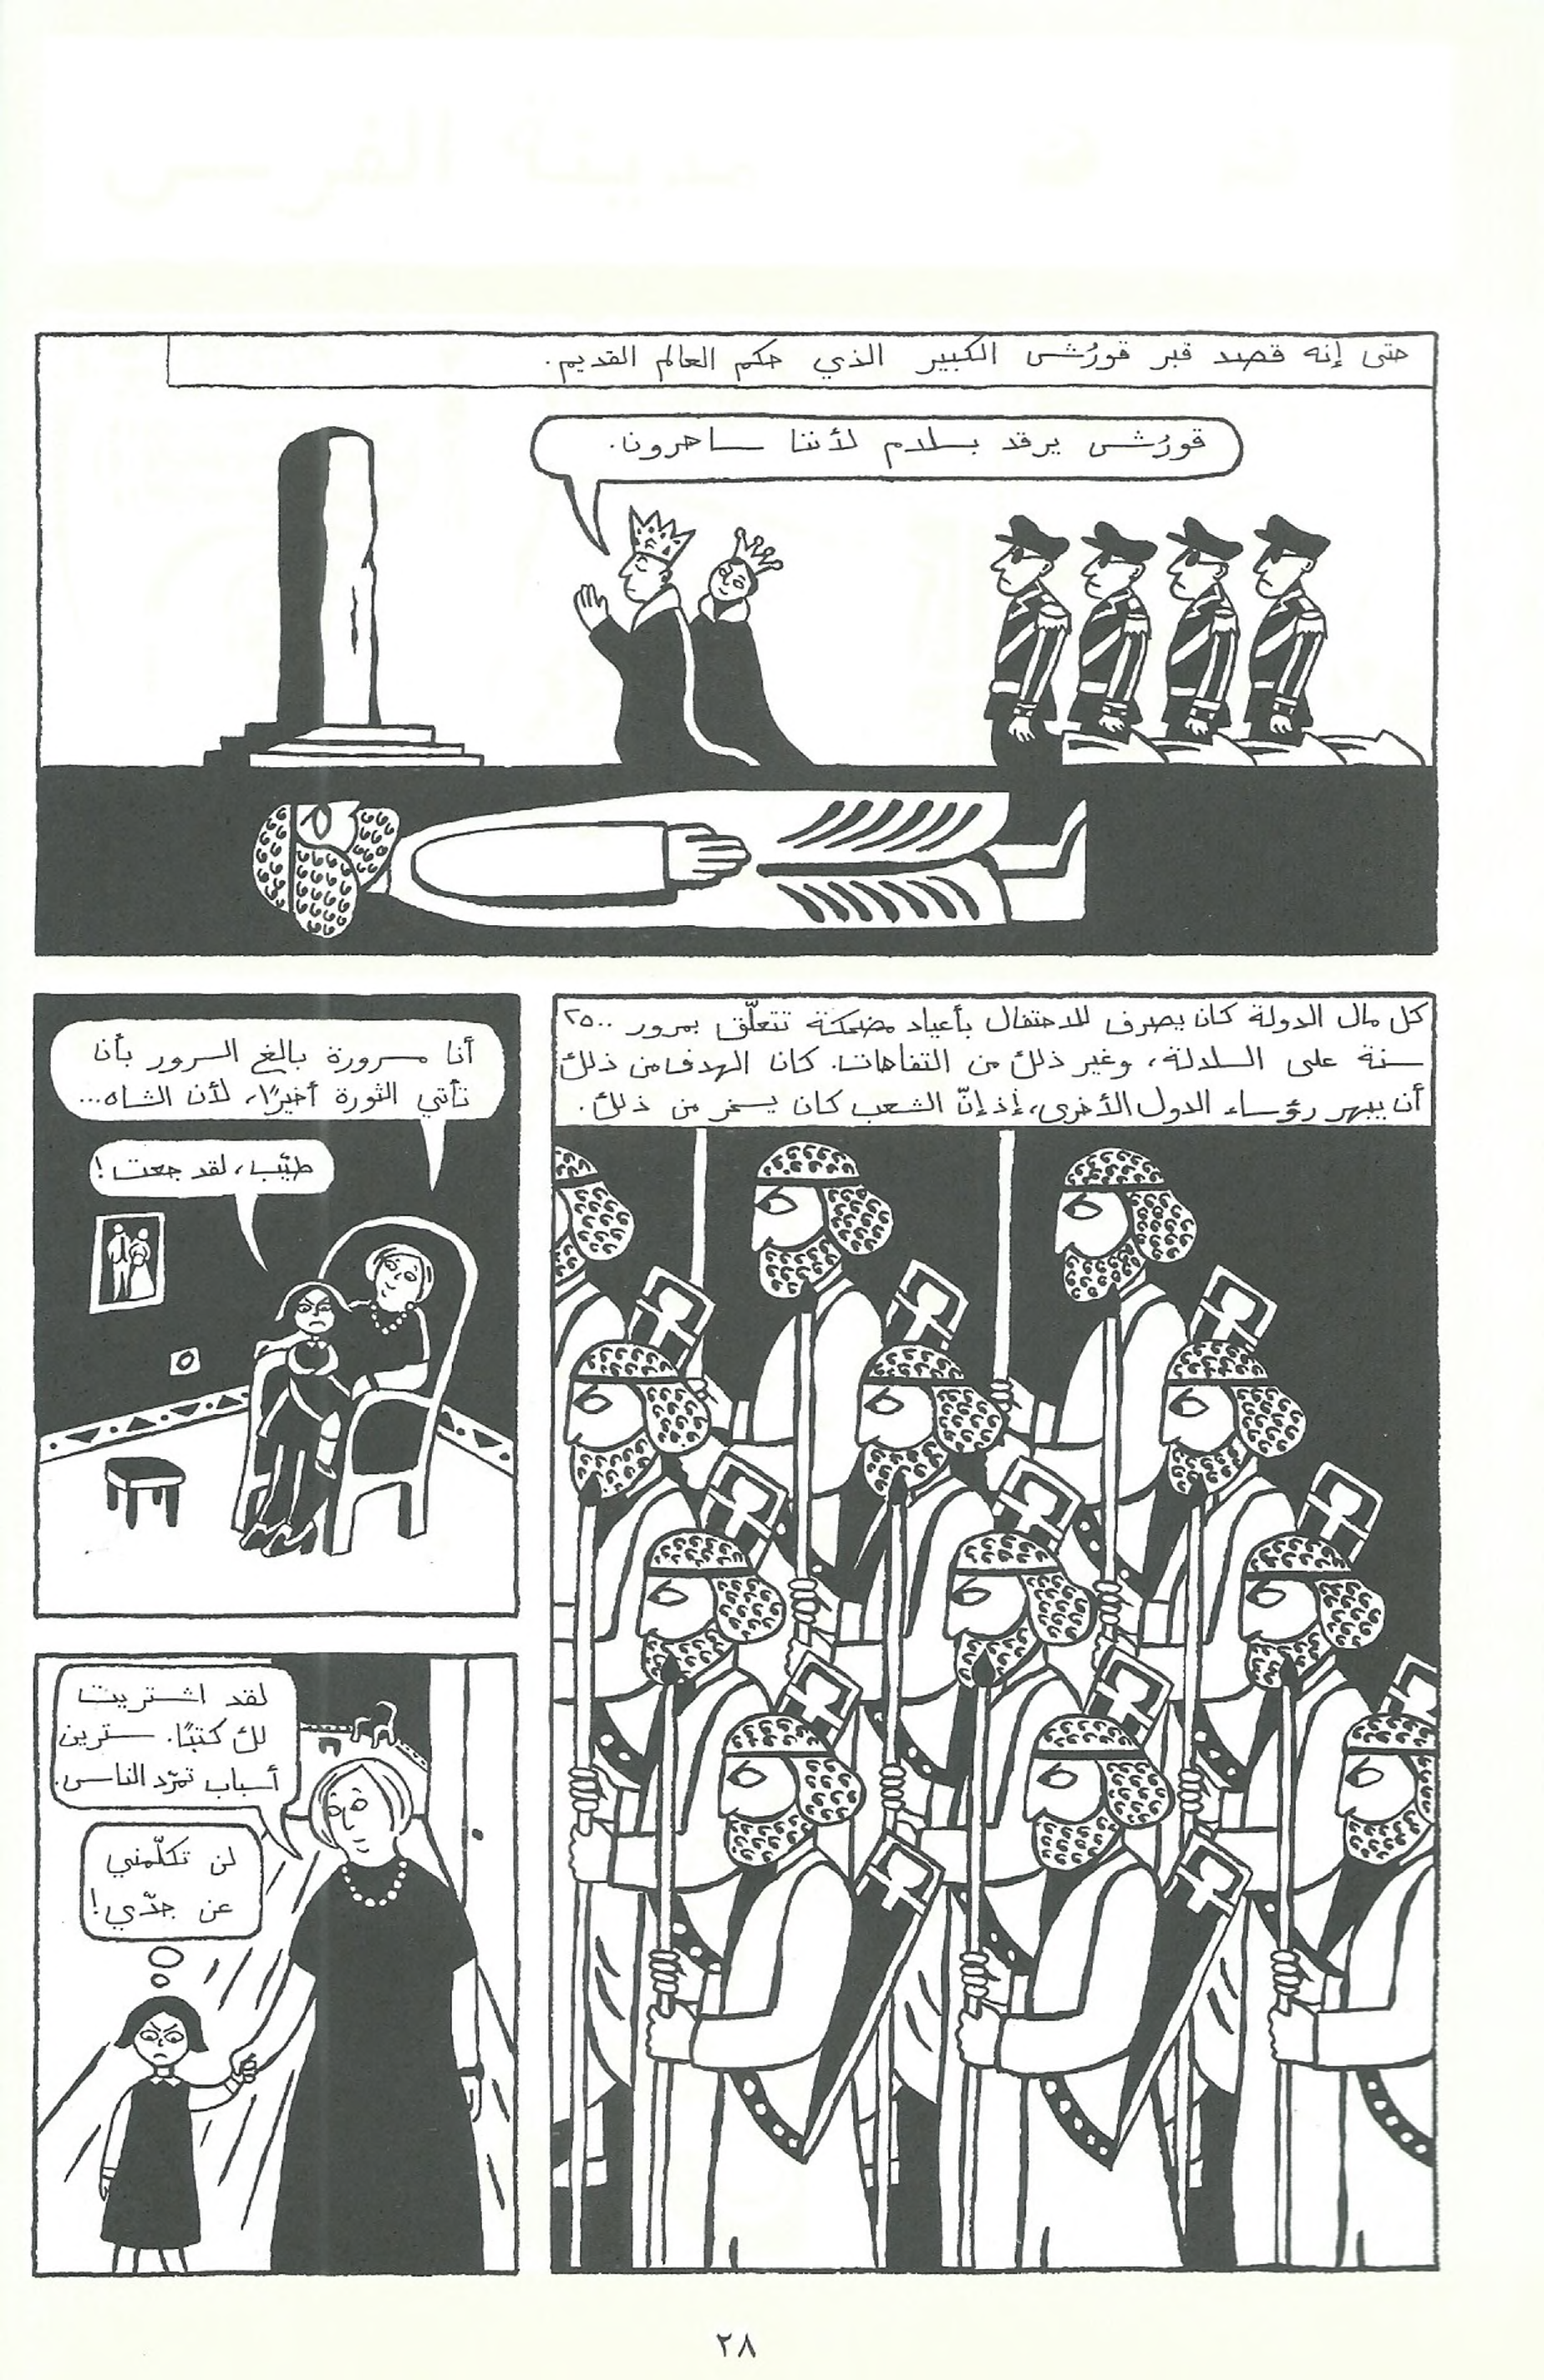 حتى إنه قصد قبر قورُش الكبير الذي حكم العالم القديم.
قورُش يرقد بسلام لأننا ساهرون.
كل مال الدولة كان يصرف للاحتفال بأعياد مضحكة تتعلّق بمرور ٢٥٠٠
سنة على السلالة، وغير ذلك من التفاهات. كان الهدف من ذلك
أن يبهر رؤساء الدول الأخرى، إذ إنّ الشعب كان يسخر من ذلك.
أنا مسرورة بالغ السرور بأن
تأتي الثورة أخيرًا، لأن الشاه...
طيّب، لقد جعت!
لقد اشتريت
لك كتبًا. سترين
أسباب تمرّد الناس.
لن تكلّمني
عن جدّي!
٢٨